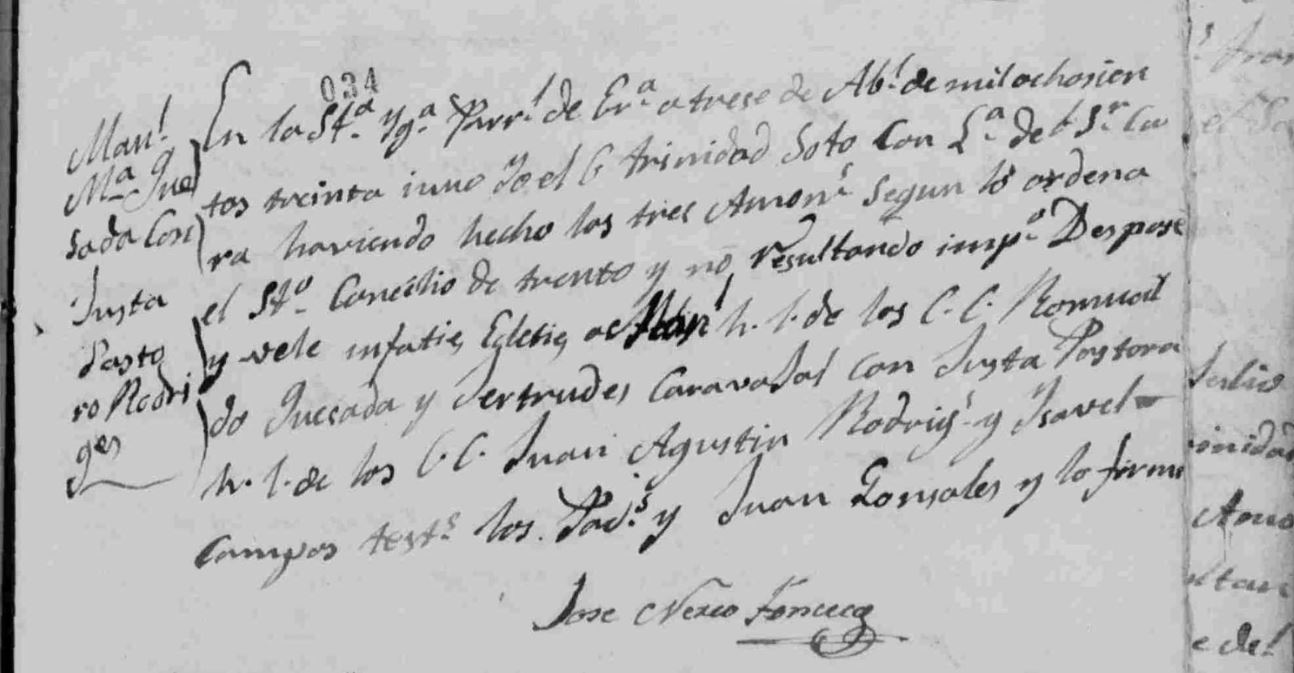 034
Man.l
M.a Que
sada Con
Justa
Pasto
ra Rodri
ges
En la St.a Yg.a Parr.l de Er.a a trese de Ab.l de mil ochosien
tos treinta iuno yo el C Trinidad Soto con L.a de l S.r Cu
ra haviendo hecho las tres Amon.s segun lo ordena
el St.o Concilio de trento y no resultando imp.o Despose
y vele infatie Ecletie a Man.l h. l. de los C. C. Romual
do Quesada y Jertrudes Caravajal con Justa Pastora
h. l. de los C. C. Juan Agustin Rodrig.s y Isavel
Campos test.s los Pad.s y Juan Gonsales y lo firme
Jose Nereo Fonceca